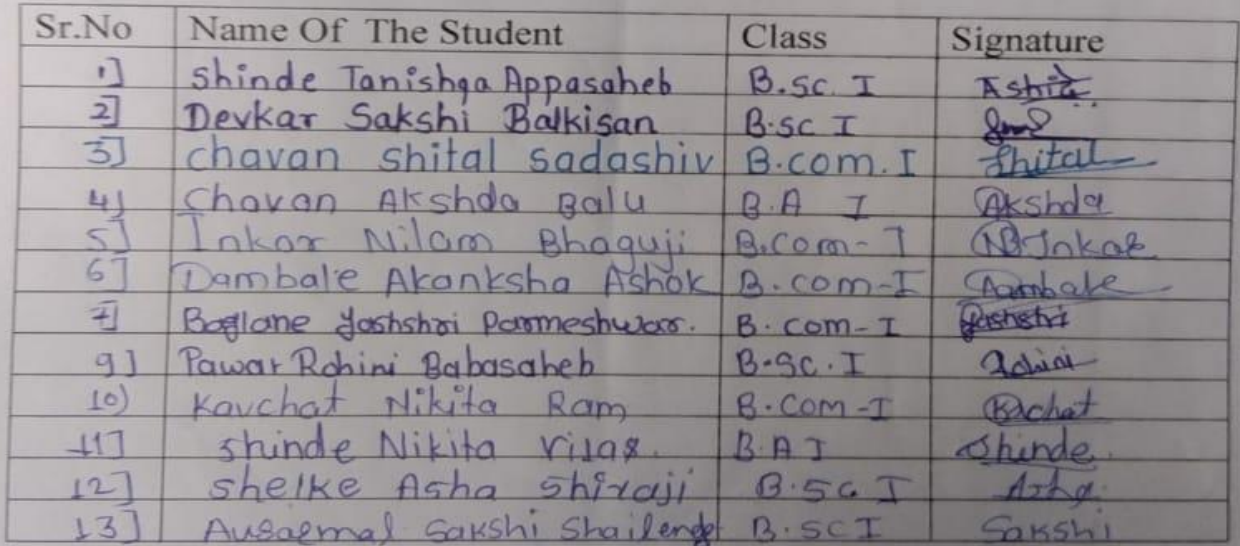 Sr.No Name Of The Student Class Signature
1] Shinde Tanishqa Appasaheb B.sc. I
2] Devkar Sakshi Balkisan B.sc I
3] chavan shital sadashiv B.com. I Shital
4] Chavan Akshda Balu B.A I Akshda
5] Inkar Nilam Bhaguji B.com-I NBInkar
6] Dambale Akanksha Ashok B.com-I Dambale
7] Baglane Yashshri Parmeshwar. B.com-I Yashshri
9] Pawar Rohini Babasaheb B.SC.I Rohini
10) Kavchat Nikita Ram B.com-I
11] Shinde Nikita Vilas. B.A I Shinde
12] Shelke Asha Shivaji B.Sc. I Asha
13] Sakshi B.SC I Sakshi